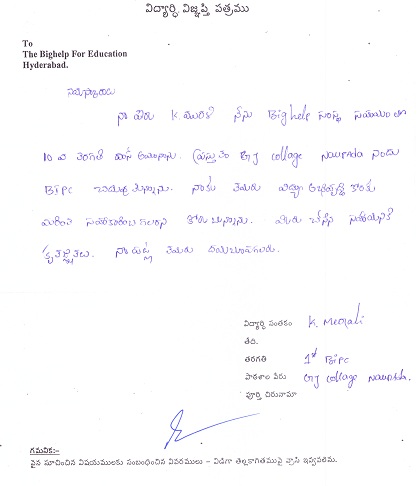 విద్యార్థి విజ్ఞప్తి పత్రము
To
The Bighelp For Education
Hyderabad.
నమస్కారములు
నా పేరు K. మురళి నేను Bighelp సంస్థ సహాయం తో
10 వ తరగతి పాస్ అయినాను. ప్రస్తుతం GJ collage Naupada నందు
BiPC చదువుతున్నాను. నాకు మీరు విద్యా అభివృద్ధి కొరకు
మరింత సహకారించగలరని కోరుచున్నాను. మీరు చేసిన సహాయానికి
కృతజ్ఞతలు. నా పట్ల మీరు దయచూపగలరు.
విద్యార్థి సంతకం K. Murali
తేది.
తరగతి 1st BiPC
పాఠశాల పేరు GJ collage Naupada.
పూర్తి చిరునామా
గమనిక:-
పైన సూచించిన విషయములకు సంబంధించిన వివరములు – విడిగా తెల్లకాగితముపై వ్రాసి ఇవ్వవలెను.